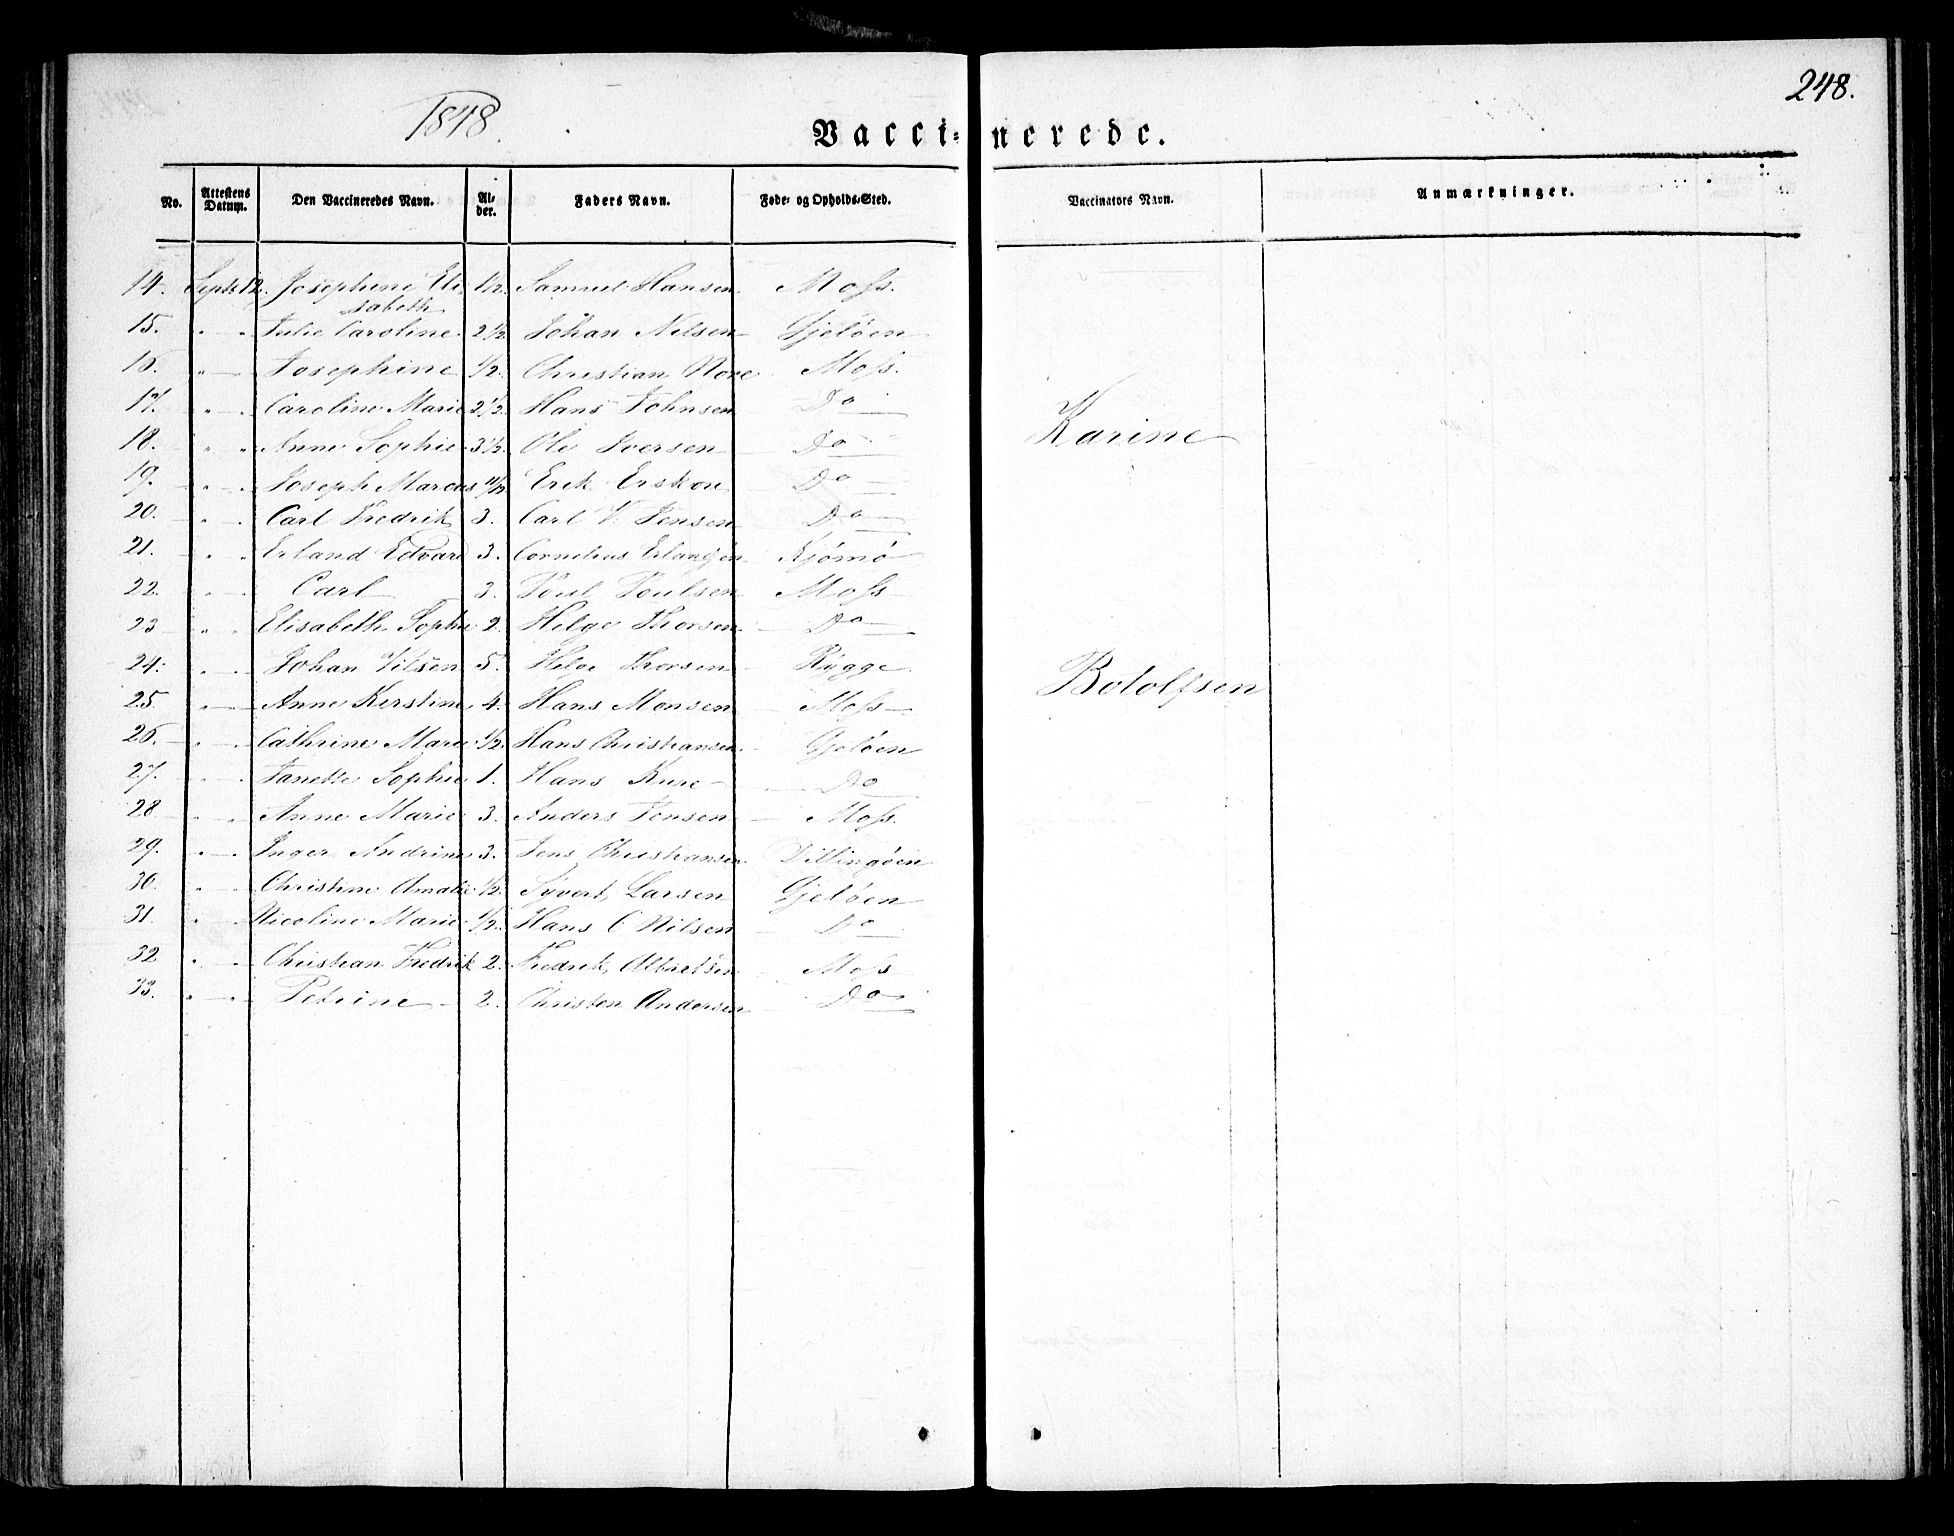 248.
1848.
Vaccinerede.
No. Attestens Datum. Den Vaccineredes Navn. Alder. Faders Navn. Føde- og Opholds-Sted. Vaccinators Navn. Anmærkninger.
14. Septb 12. Josephine Eli- 1/2. Samuel Hansen Moss.
sabeth
15. " " Julie Caroline 2 1/2 Johan Nilsen Gjelöen
16. " Josephine 1/2. Christian Moss.
17. " " Caroline Marie 2 1/2. Hans Johnsen Do
18. " " Anne Sophie 3 1/2. Ole Iversen Do Karine
19. " " Joseph Marcus Erik Do
20. " Carl Fredrik 3. Carl V. Jensen Do
21. " " Erland Edvard 3. Cornelius Erlandsen
22. " " Carl 3. Poul Poulsen Moss
23 " " Elisabeth Sophie 2. Helge Thorsen Do
24. " " Johan 5. Helge Thorsen Rygge Botolfsen
25. " Anne Kerstine 4. Hans Monsen Moss
26. " " Cathrine Marie 1/2. Hans Christiansen Gjelöen
27. " " Janette Sophie 1. Hans Kure Do
28 " " Anne Marie 3. Anders Jensen Moss.
29. " " Inger Andrine 3. Jens Christiansen Dillingöen
30. " " Christine Amalie 1/2. Syvert Larsen Gjelöen
31. " Nicoline Marie 1/2. Hans C Nilsen Do
32. " " Christian Fredrik 2. Fredrik Albretsen Moss
33. " " Petrine 2. Christen Andersen Do